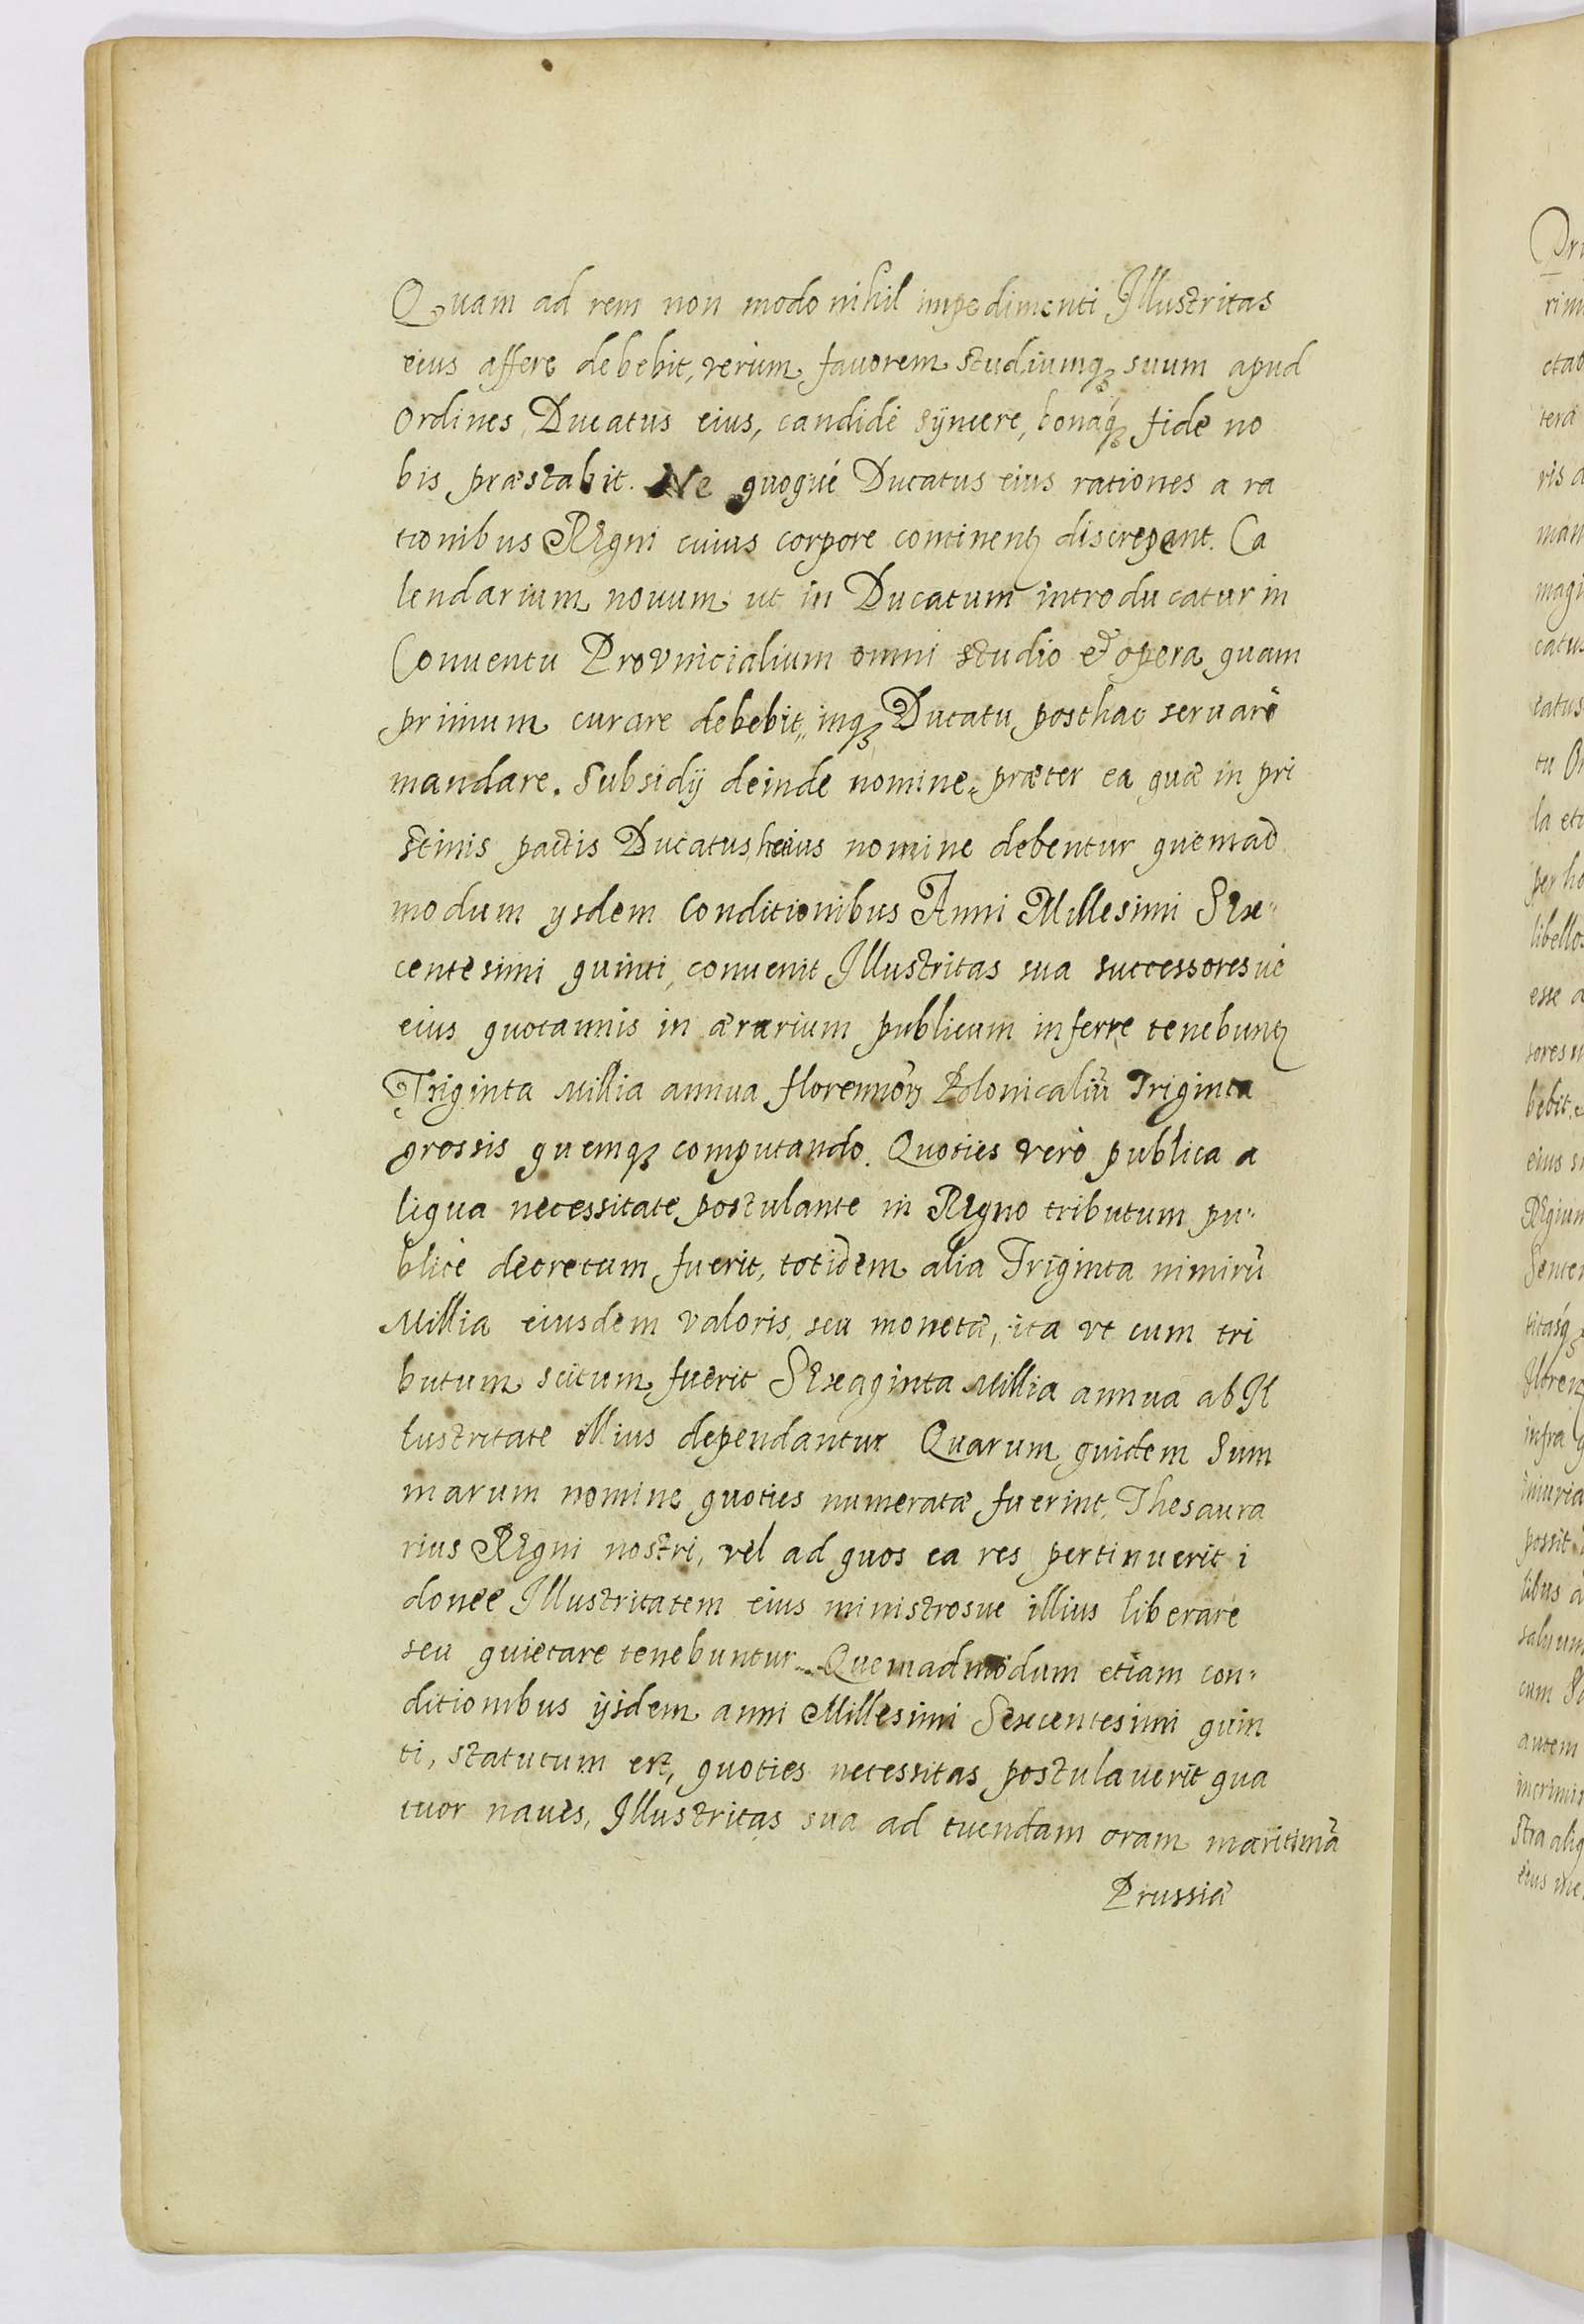 Quam ad rem non modo nihil impedimenti Illustritas
eius affere debebit, verùm fauorem studiumq; suum apud
Ordines Ducatus eius, candidè syncere, bonáq; fide no
bis præstabit. Ne quoquè Ducatus eius rationes a ra
tionibus Regni cuius corpore continent discrepent. Ca
lendarium nouum ut in Ducatum introducatur in
Conuentu Provincialium omni studio et opera quam
primum curare debebit, inq; Ducatu posthac seruarè
mandare. Subsidij deinde nomine præter ea quæ in pri
stinis pactis Ducatus huius nomine debentur quemad
modum ysdem Conditionibus Anni Millesimi Sex-
centesimi quinti, conuenit Illustritas sua successoresuè
eius quotannis in ærarium publicum inferre tenebunt
Triginta Millia annua florenorũ Polonicaliũ Triginta
grossis quemq; computando. Quoties verò publica a
liqua necessitate postulante in Regno tributum pu-
blicè decretum fuerit, totidem alia Triginta nimirũ
Millia eiusdem valoris, seu monetæ, ita vt cum tri
butum scitum fuerit Sexaginta Millia annua ab Il
lustritate illius dependantur Quarum quidem Sum
marum nomine quoties numeratæ fuerint, Thesaura
rius Regni nostri, vel ad quos ea res pertinuerit i
donee Illustritatem eius ministrosue illius liberare
seu quietare tenebuntur. Quemadmodum etiam con-
ditionibus ijsdem anni Millesimi Sexcentesimi quin
ti, statutum est, quoties necessitas postulauerit qua
tuor naues, Illustritas sua ad tuendam oram maritimã
Prussiæ